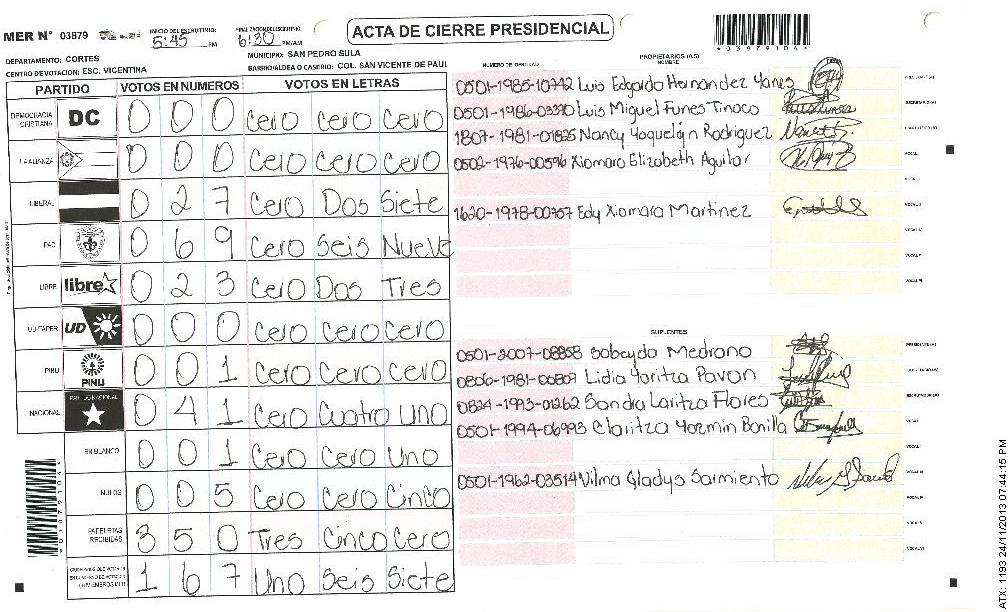 MER N° 03879
INICIO DEL ESCRUTINIO:
5:45 PM
FINALIZACION DEL ESCRUTINIO:
6:30 PM/AM
ACTA DE CIERRE PRESIDENCIAL
*03879106*
DEPARTAMENTO: CORTES
MUNICIPIO: SAN PEDRO SULA
CENTRO DE VOTACION: ESC. VICENTINA
BARRIO/ALDEA O CASERIO: COL. SAN VICENTE DE PAUL
PARTIDO VOTOS EN NUMEROS VOTOS EN LETRAS
DEMOCRACIA CRISTIANA DC 0 0 0 Cero Cero Cero
LA ALIANZA 0 0 0 Cero Cero Cero
LIBERAL 0 2 7 Cero Dos Siete
PAC 0 6 9 Cero Seis Nueve
LIBRE libre 0 2 3 Cero Dos Tres
UD-FAPER UD 0 0 0 Cero Cero Cero
PINU PINU 0 0 1 Cero Cero Cero
NACIONAL PARTIDO NACIONAL 0 4 1 Cero Cuatro Uno
EN BLANCO 0 0 1 Cero Cero Uno
NULOS 0 0 5 Cero Cero Cinco
PAPELETAS RECIBIDAS 3 5 0 Tres Cinco Cero
1 6 7 Uno Seis Siete
NUMERO DE IDENTIDAD
PROPIETARIOS (AS)
NOMBRE
0501-1985-10742 Luis Edgardo Hernandez Yanes
0501-1986-03390 Luis Miguel Funes Tinoco
1807-1981-01825 Nancy Yaquelin Rodriguez
0502-1976-00596 Xiomara Elizabeth Aguilar
1620-1978-00757 Edy Xiomara Martinez
SUPLENTES
0501-2007-08858 Sobeyda Medrano
0806-1981-00809 Lidia Yaritza Pavon
0824-1993-01262 Sandra Laritza Flores
0501-1994-06993 Claritza Yazmin Bonilla
0501-1962-03514 Vilma Gladys Sarmiento
ATX: 1193 24/11/2013 07:44:15 PM